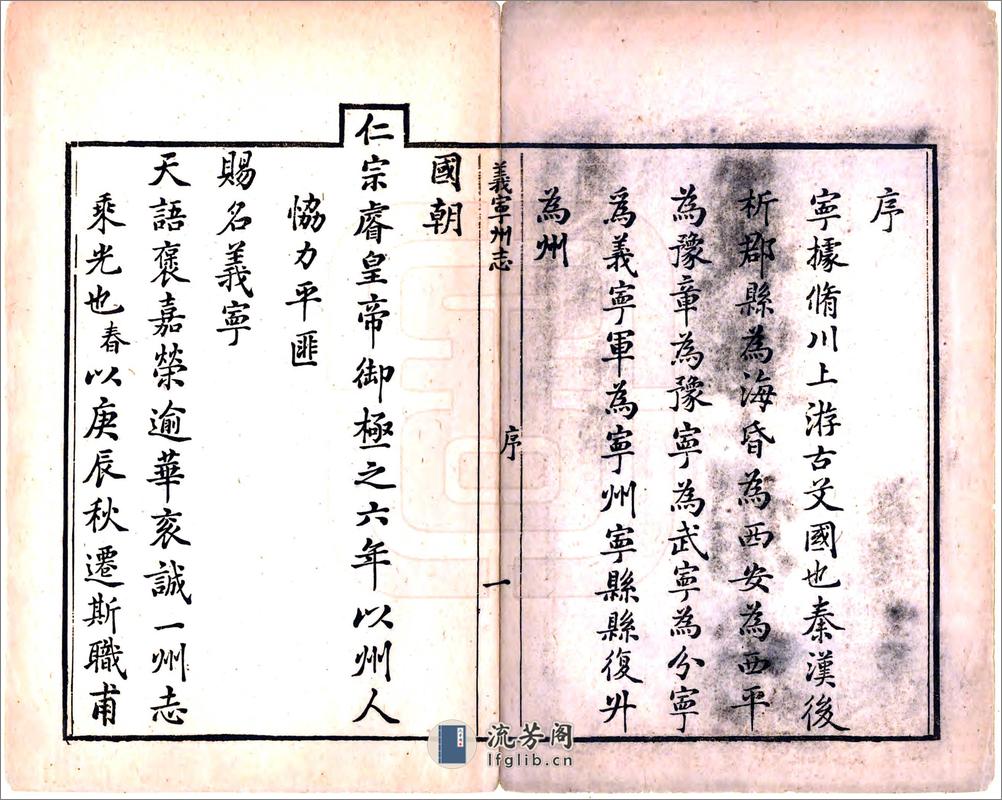 序
寧據脩川上游古艾國也秦漢後
析郡縣為海昏為西安為西平
為豫章為豫寧為武寧為分寧
為義寧軍為寧州寧縣縣復升
為州
義寧州志 序 一
國朝
仁宗睿皇帝御極之六年以州人
恊力平匪
賜名義寧
天語褒嘉榮逾華衮誠一州志
乘光也春以庚辰秋遷斯職甫
流芳阁
lfglib.cn